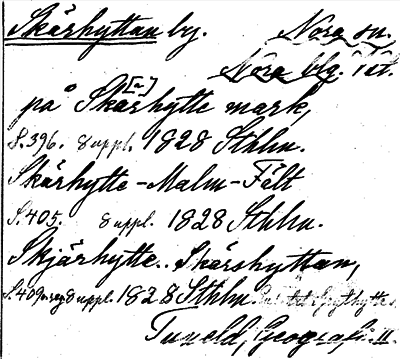 Skärhyttan by. Nora sn.
Nora blg. Väl.
[~]
på Skarhytte mark,
S. 396. 8 uppl. 1828 Sthlm.
Skärhytte-Malm-Fält
S. 405. 8 uppl. 1828 Sthlm.
Skjärhytte.. Skärshyttan,
S. 409 8 uppl. 1828 Sthlm.
Tuneld, Geografi. II.